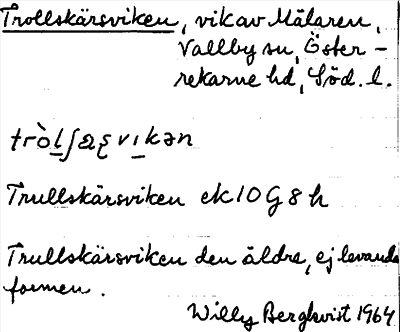 Trollskärsviken, vik av Mälaren,
Vallby sn, Öster-
rekarne hd, Söd. l.
Trullskärsviken ek 10 G 8 h
Trullskärsviken den äldre, ej levande
formen.
Willy Bergkvist 1964